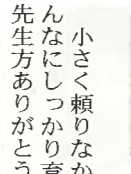 小さく頼りなか
んなにしっかり育
先生方ありがとう